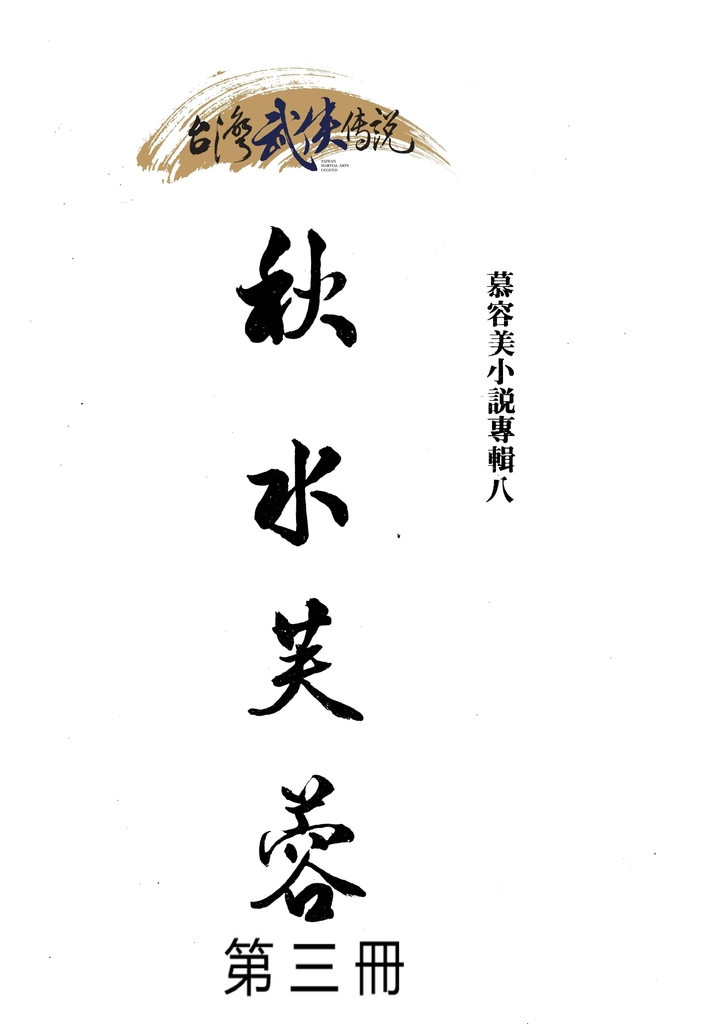 台灣武俠传説
TAIWAN
MARTIAL ARTS
LEGEND
慕容美小説專輯八
秋水芙蓉
第三冊